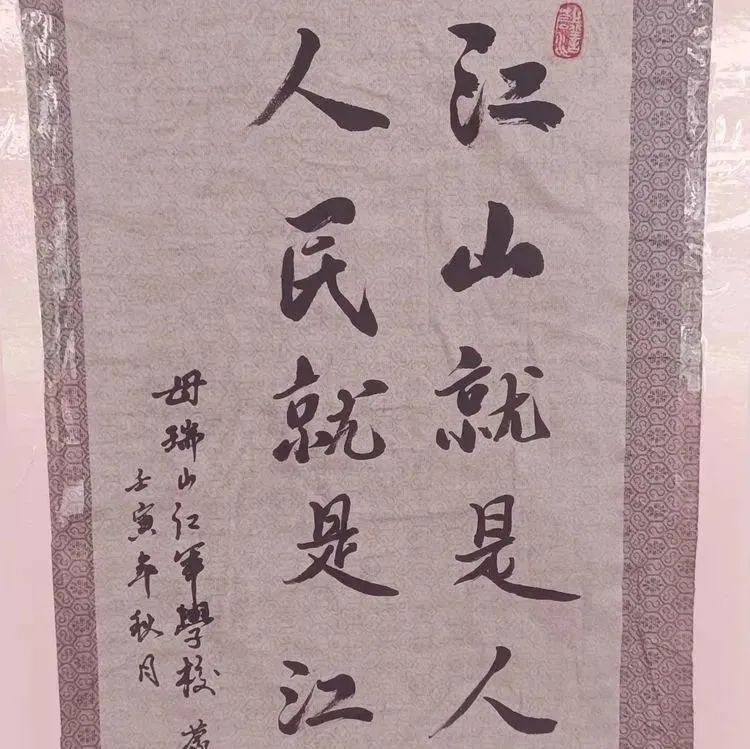 江山就是人
人民就是江
母瑞山红军學校
壬寅年秋月